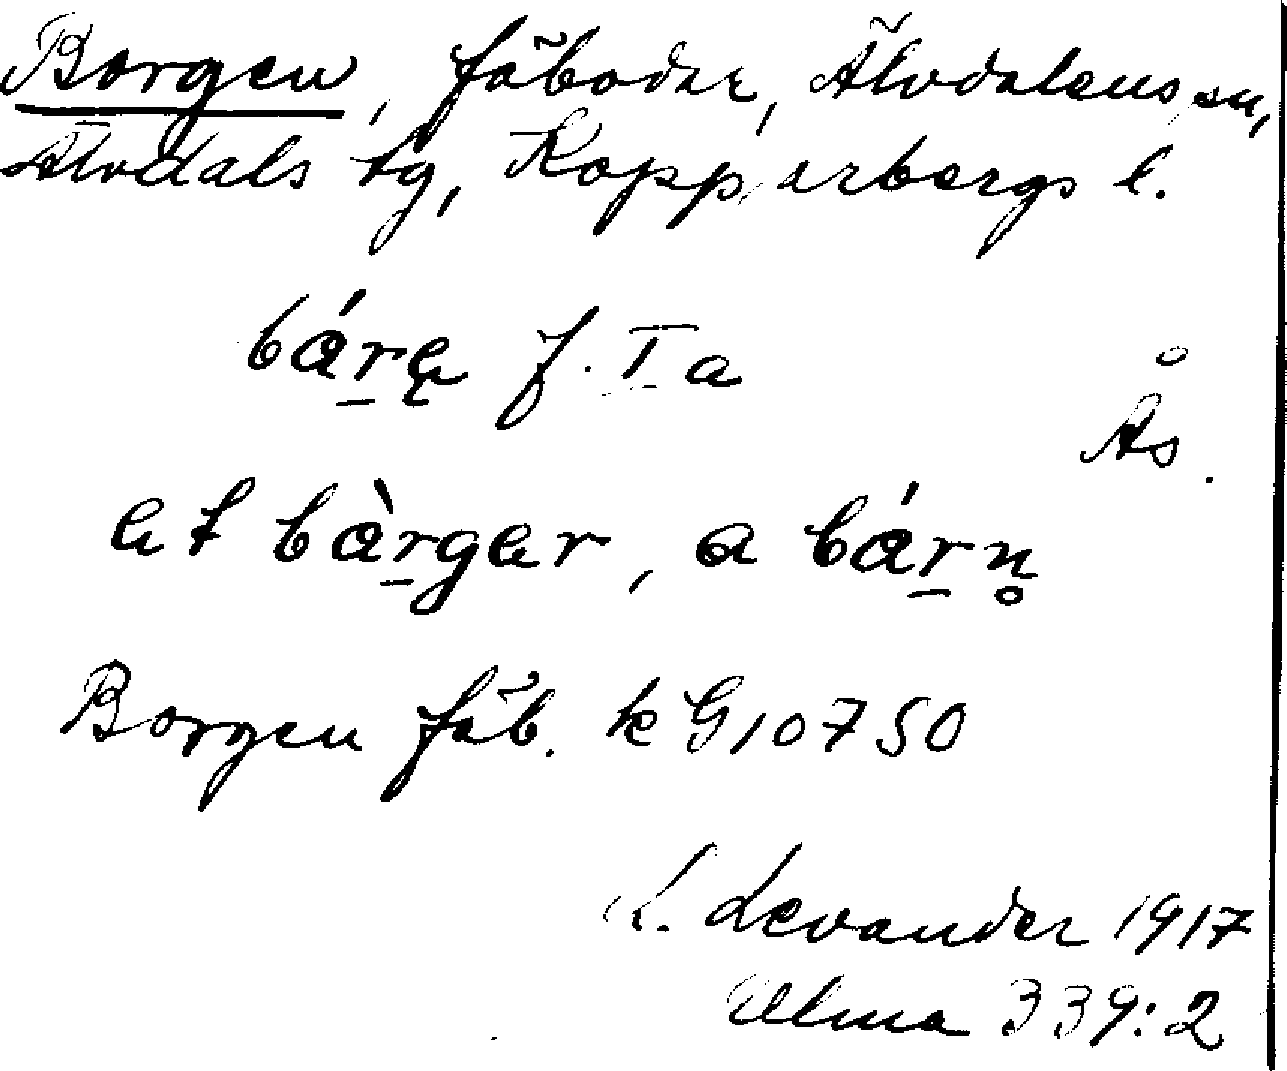 Borgen, fäbodar, Älvdalens sn,
Älvdals tg, Kopparbergs l.
bá̱rę f. I a
Ås.
at bà̱rgar, a bá̱rn̥
Borgen fäb. kG10750
L. Levander 1917
Ulma 339:2